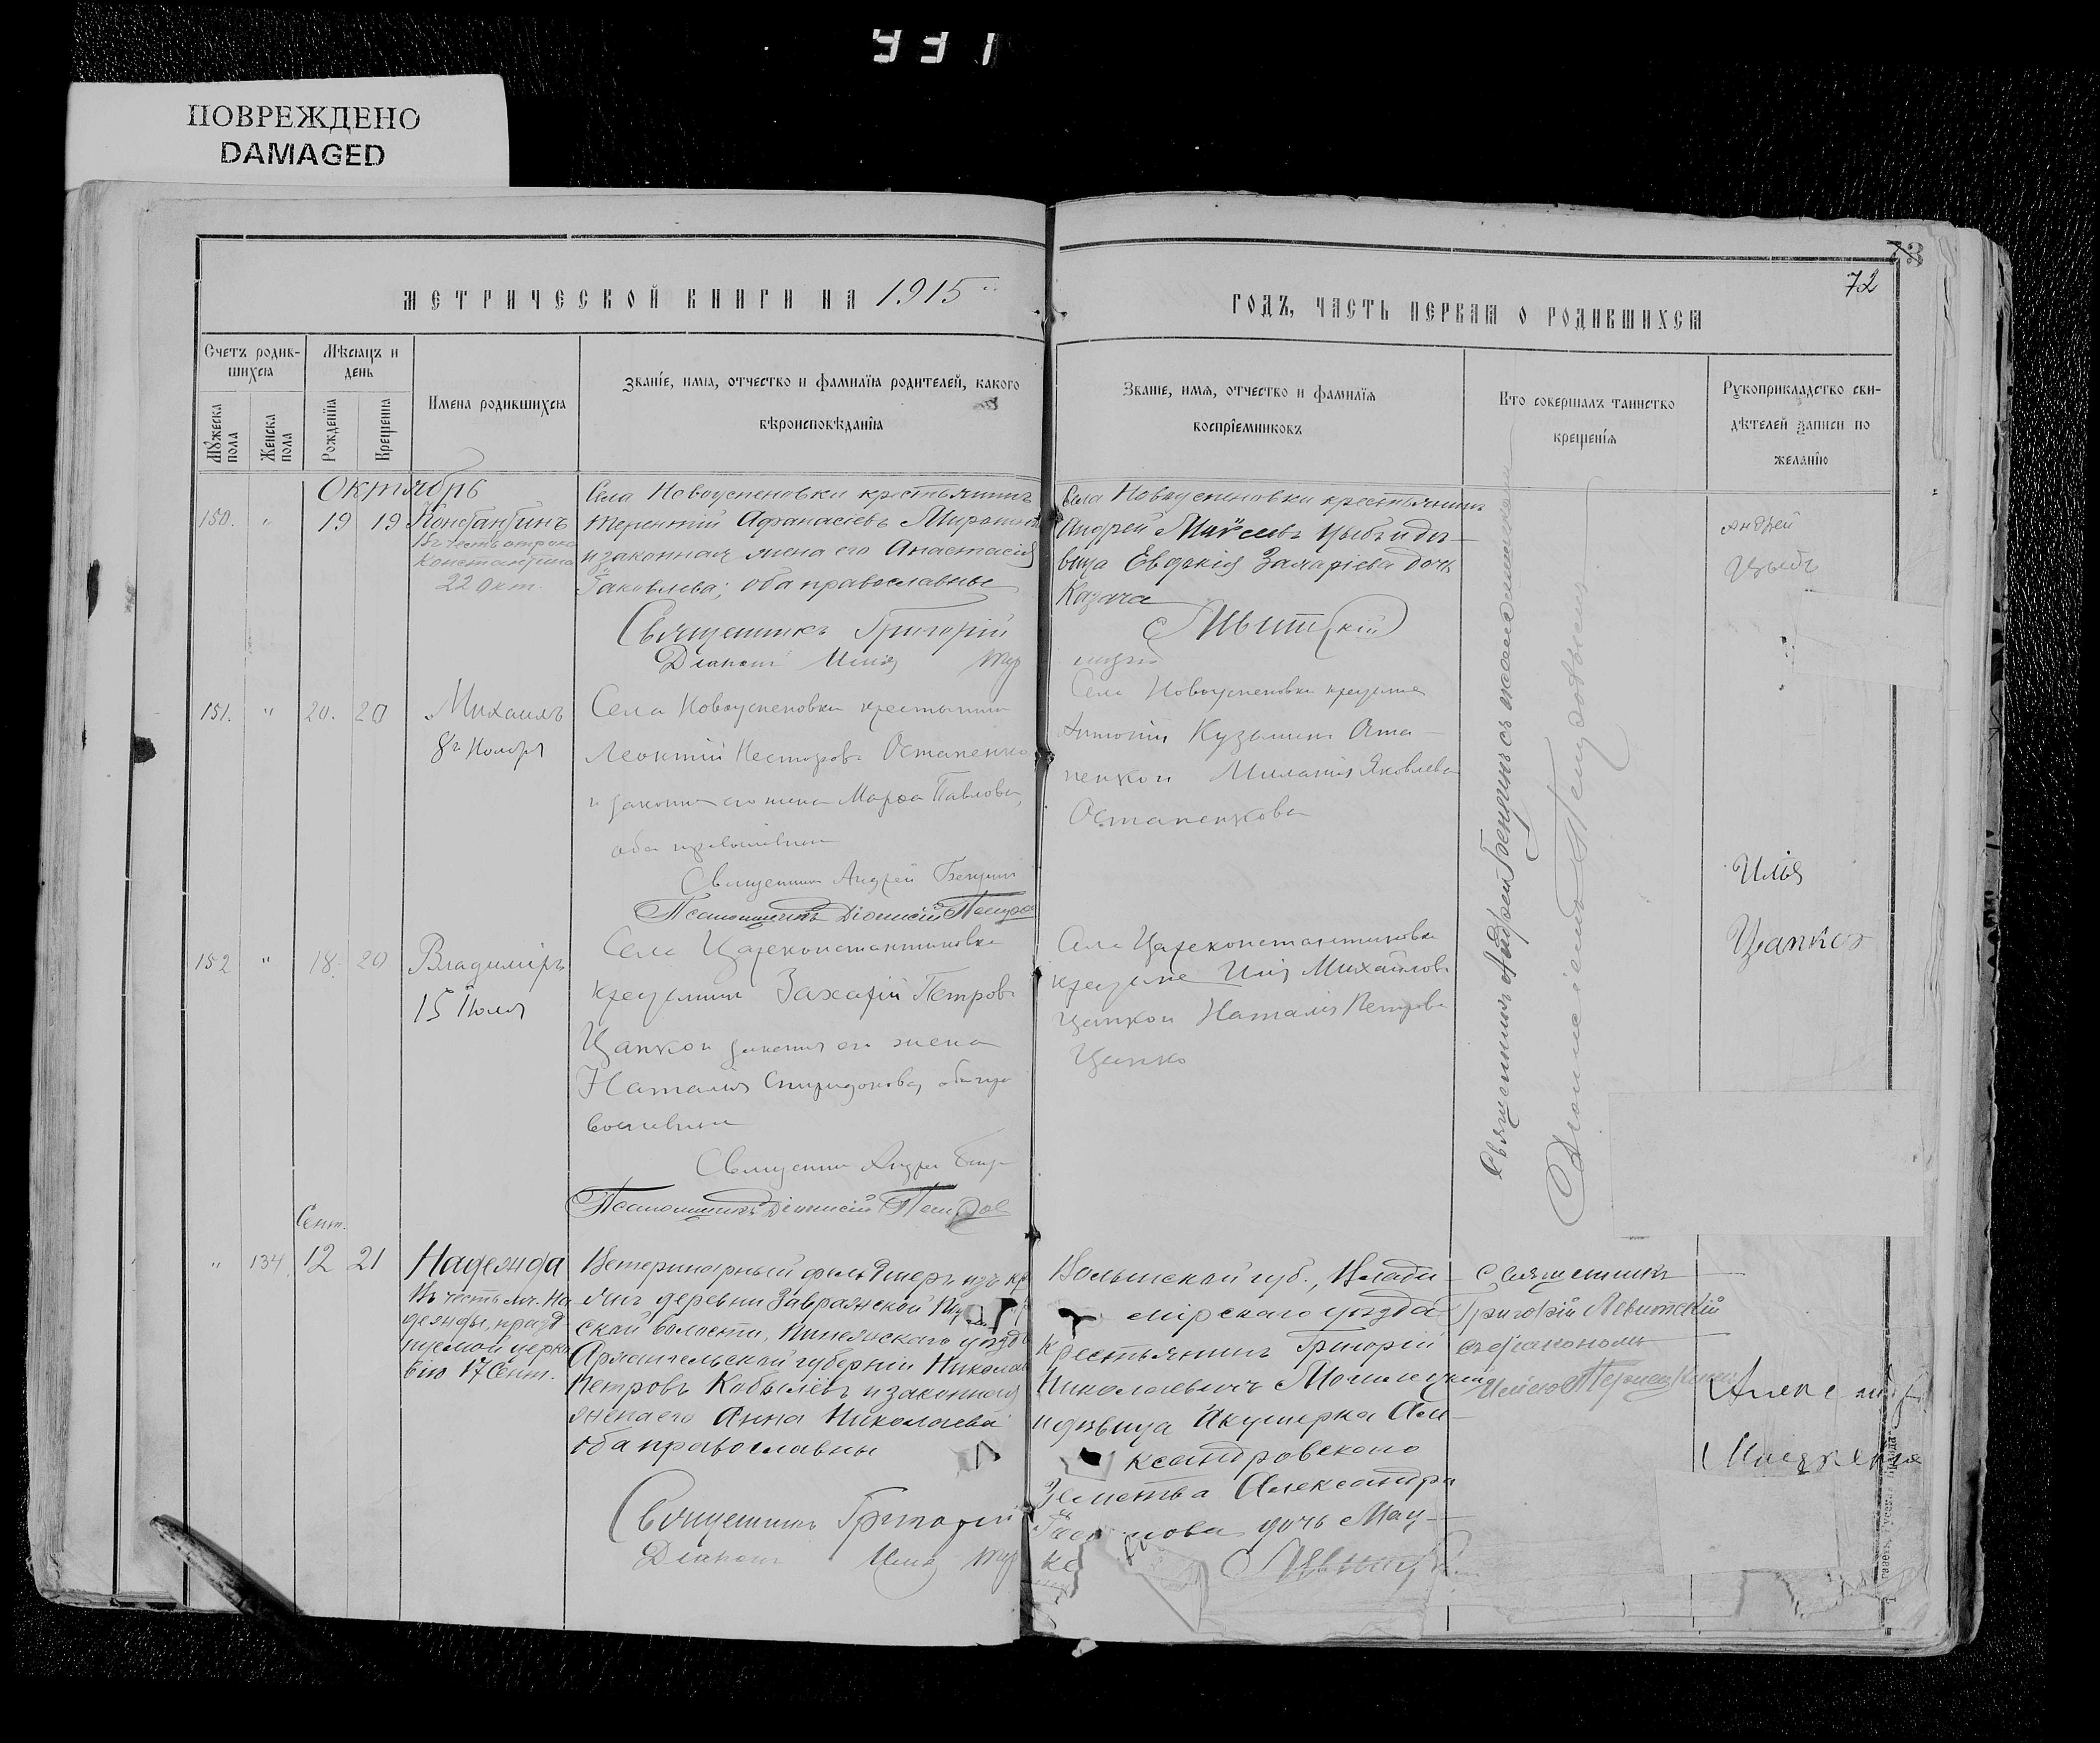 331
ПОВРЕЖДЕНО
DAMAGED
73
72
МЕТРИЧЕСКОЙ КНИГИ НА 1915
ГОДЪ, ЧАСТЬ ПЕРВАЯ О РОДИВШИХСЯ
Счетъ родившихся
Мужеска пола
Женска пола
Мѣсяцъ и день
Рожденїя
Крещенїя
Имена родившихся
Званїе, имя, отчество и фамилїя родителей, какого
вѣроисповѣданїя
Званїе, имя, отчество и фамилїя
воспрїемниковъ
Кто совершалъ таинство
крещенїя
Рукоприкладство сви-
дѣтелей записи по
желанїю
Октябрь
150. " 19 19 Константинъ
Въ честь отрока
Константина
22 Окт.
Села Новоуспеновки крестьянинъ
Терентій Афанасіевъ
и законная жена его Анастасія
Іаковлева; оба православные
Священникъ Григорій
Діаконъ Илія
Села Новоуспеновки крестьянинъ
Андрей Моѵсеевъ Цыбъ и дѣ-
вица Евдокія Захаріева дочь
Казача
Андрей
Цыбъ
151. " 20. 20 Михаилъ
8 Ноября
Села Новоуспеновки крестьянин
Леонтій Несторовъ Остапенко
и законная его жена Марфа Павлова,
оба православны
Священник Андрей
Псаломщикъ Діонисій
Села Новоуспеновки крестьяне
Антоній Кузьмин Оста-
пенко и Миланія Яковлева
Остапенкова
152 " 18. 20 Владиміръ
15 Іюля
Села Цареконстантиновки
крестьянин Захарій Петровъ
Цапко и законная его жена
Наталія Спиридонова, оба пра-
вославны
Священник Андрей
Псаломщикъ Діонисій
Села Цареконстантиновки
крестьяне Илія Михайловъ
Цапко и Наталія Петрова
Цапко
Илья
Цапко
Священникъ Андрей
Сент.
" 134 12 21 Надежда
Въ честь мч. На-
дежды, празд-
нуемой церко-
вію 17 Сент.
Ветеринарный фельдшеръ изъ кр
янъ деревни Завражской
ской волости, Пинежскаго уѣзда
Архангельской губерніи Николай
Петровъ Кобылёвъ и законная
жена его Анна Николаева
оба православны
Священникъ Григорій
Діаконъ Илія
Волынской губ., Влади-
мірскаго уѣзда
крестьянинъ Григорій
Николаевичъ
и дѣвица Акушерка Але-
ксандровскаго
Земства Александра
дочь Мац-
Священникъ
Григорій Левитскій
съ діакономъ
Иліею